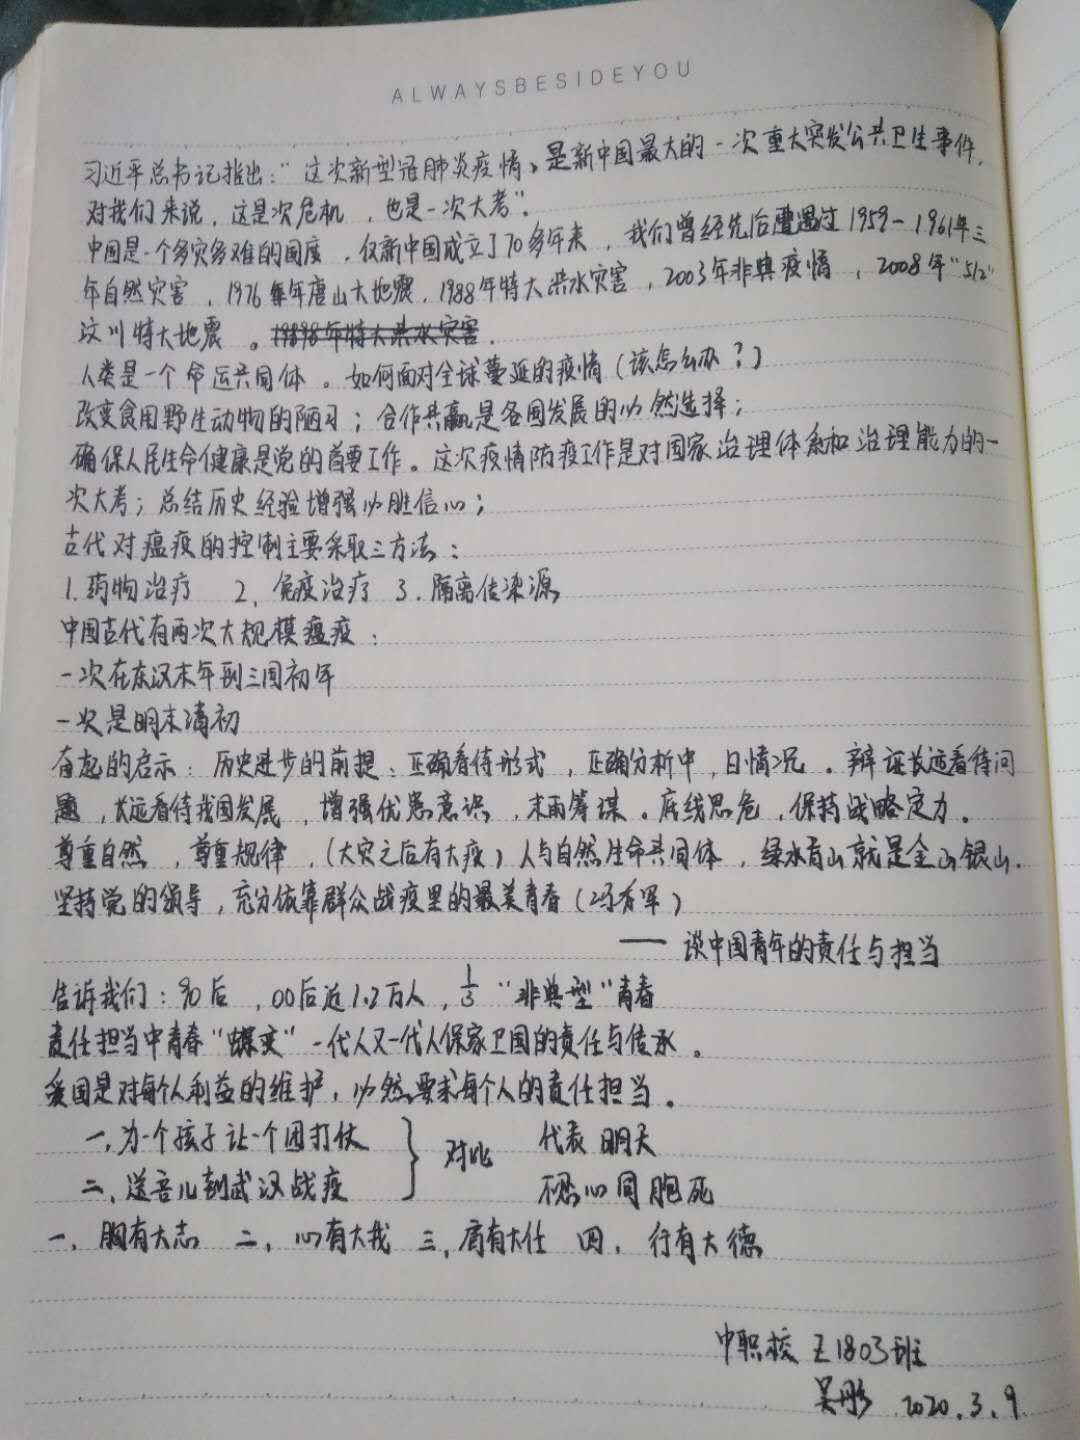 ALWAYSBESIDEYOU
习近平总书记指出：“这次新型冠肺炎疫情，是新中国最大的一次重大突发公共卫生事件，
对我们来说，这是次危机，也是一次大考”。
中国是一个多灾多难的国度，仅新中国成立了70多年来，我们曾经先后遭遇过1959-1961年三
年自然灾害，1976年年唐山大地震，1988年特大洪水灾害，2003年非典疫情，2008年“512”
汶川特大地震。19898年特大洪水灾害.
人类是一个命运共同体。如何面对全球蔓延的疫情（该怎么办？）
改变食用野生动物的陋习；合作共赢是各国发展的必然选择；
确保人民生命健康是党的首要工作。这次疫情防疫工作是对国家治理体系和治理能力的一
次大考；总结历史经验增强必胜信心；
古代对瘟疫的控制主要采取三方法：
1.药物治疗 2.免疫治疗 3.隔离传染源
中国古代有两次大规模瘟疫：
一次在东汉末年到三国初年
一次是明末清初
奋起的启示：历史进步的前提：正确看待形式，正确分析中，日情况。辩证长远看待问
题，长远看待我国发展，增强优患意识，未雨筹谋。底线思危，保持战略定力。
尊重自然，尊重规律，（大灾之后有大疫）人与自然生命共同体，绿水青山就是金山银山.
坚持党的领导，充分依靠群众战疫里的最美青春（冯有军）
—— 谈中国青年的责任与担当
告诉我们：90后，00后近1.2万人，1/3“非典型”青春
责任担当中青春“蝶变”一代人又一代人保家卫国的责任与传承。
爱国是对每个人利益的维护，必然要求每个人的责任担当。
一，为一个孩子让一个团打仗 } 对比 代表明天
二、送吾儿到武汉战疫 不忍心同胞死
一，胸有大志 二，心有大我 三，肩有大任 四，行有大德
中职校 Z1803班
吴彤 2020.3.9